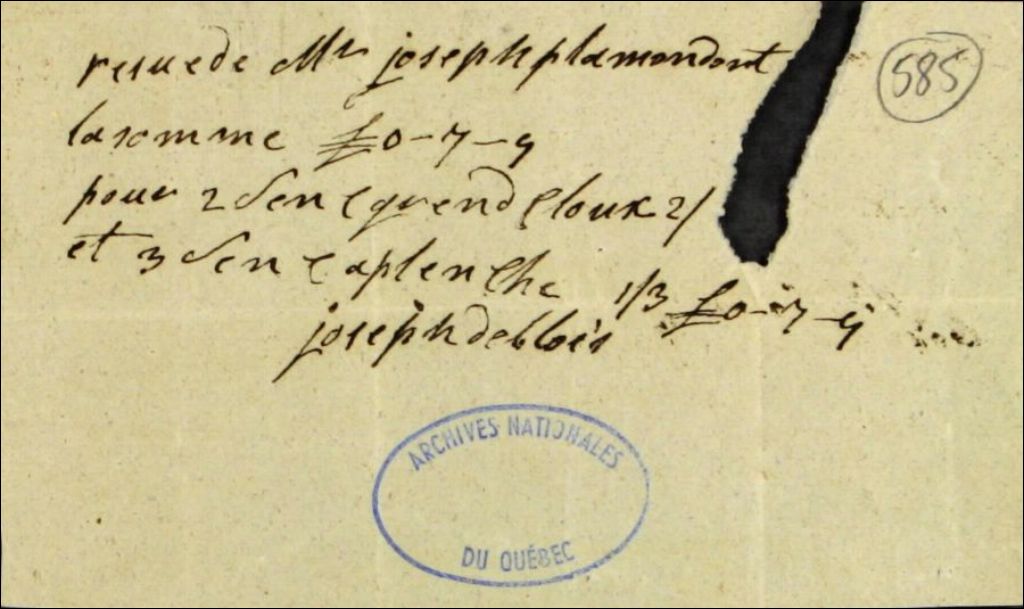 resue de Mr joseph plamondont
585
la somme £0-7-9
pour 2 den grend cloux 2/
et 3 den a plenche 1/3 £0-7-9
joseph deblois
ARCHIVES NATIONALES
DU QUÉBEC